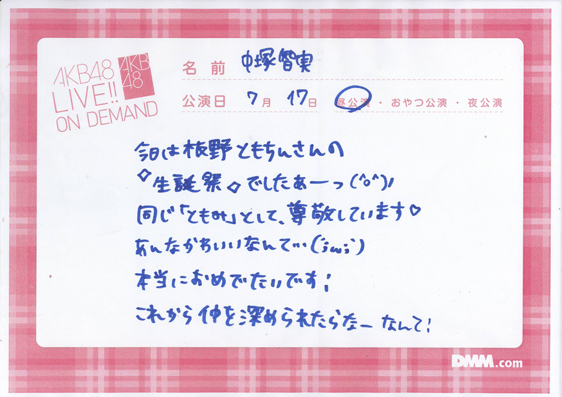 AKB48
LIVE!!
ON DEMAND
AKB
48
名前 中塚智実
公演日 7月 17日 昼公演・おやつ公演・夜公演
今日は板野ともちんさんの
◇生誕祭◇でしたぁーっ(^o^)ノ
同じ「とも」として、尊敬しています♡
あんなかわいいなんて…(;ω;)
本当におめでたいです!
これから仲を深められたらなーなんて!
DMM.com